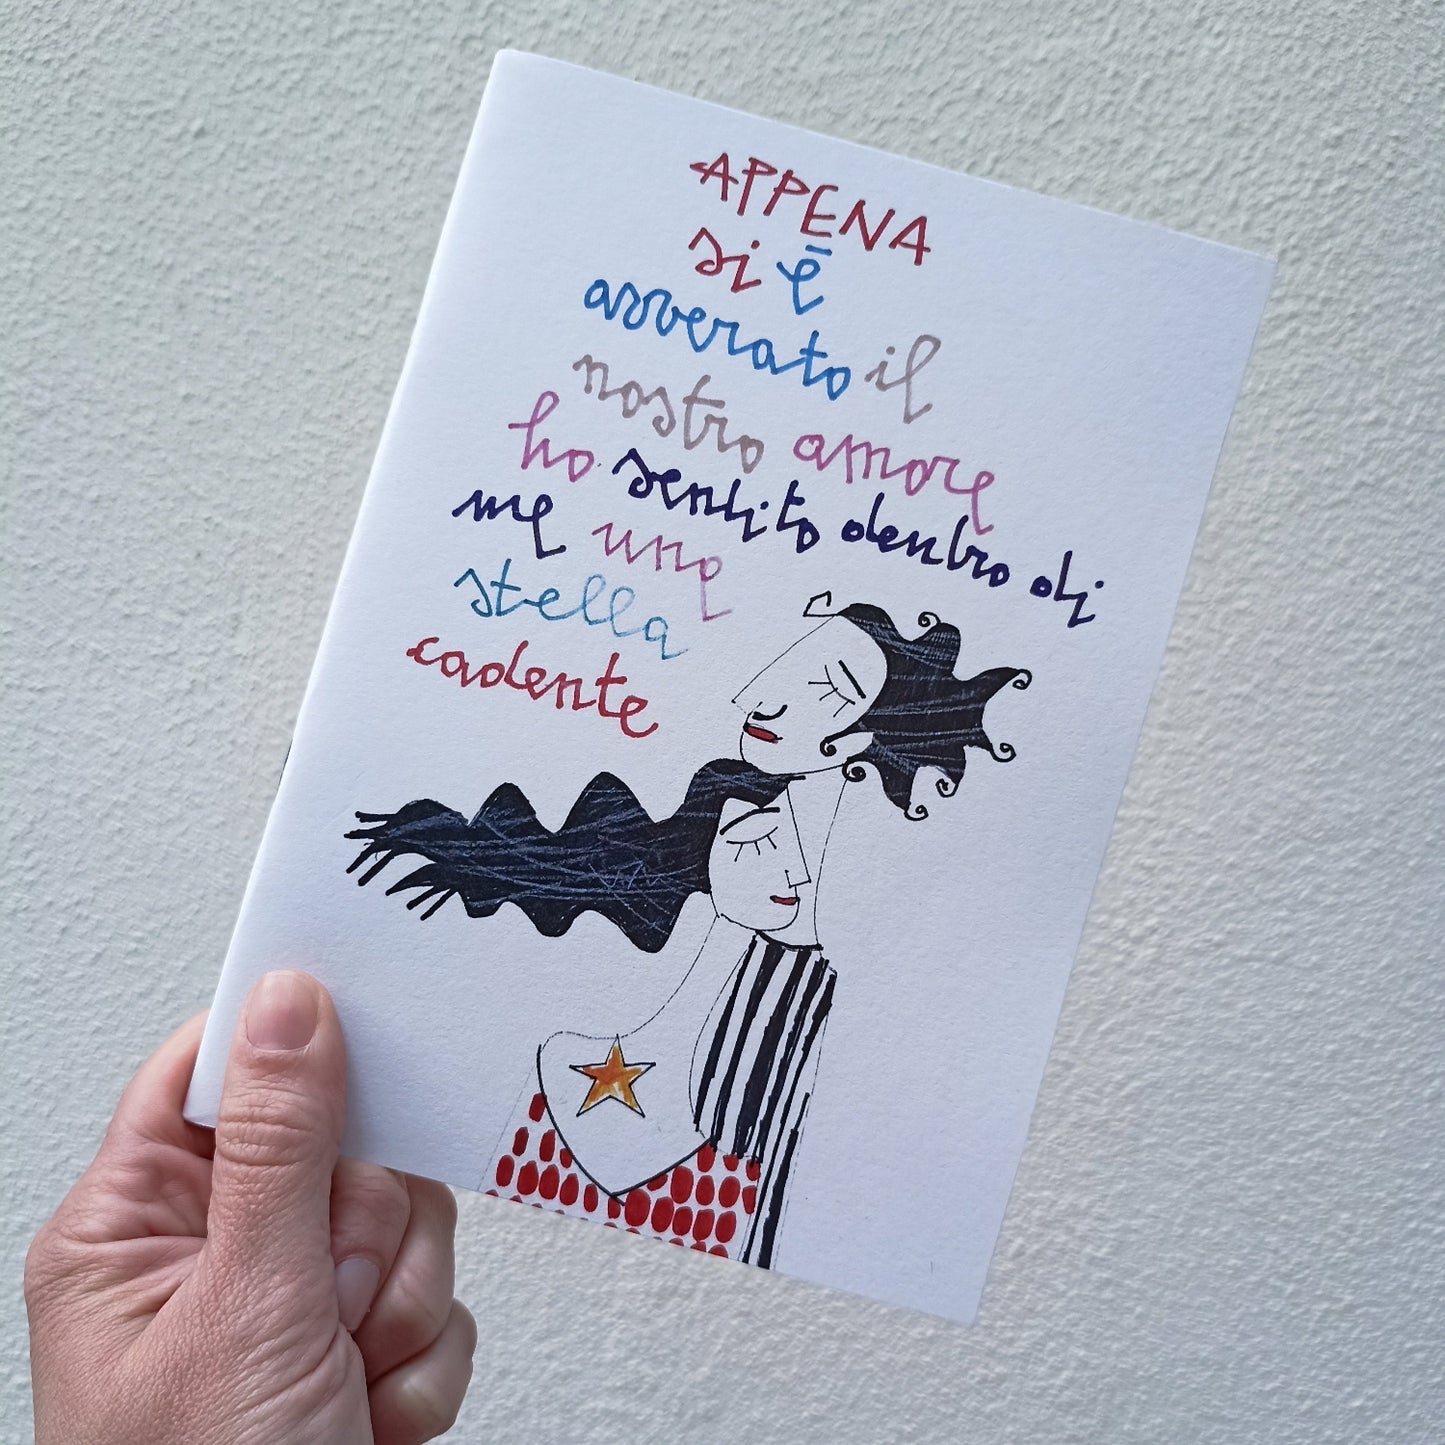 APPENA
si è
avverato il
nostro amore
ho sentito dentro di
me una
stella
cadente